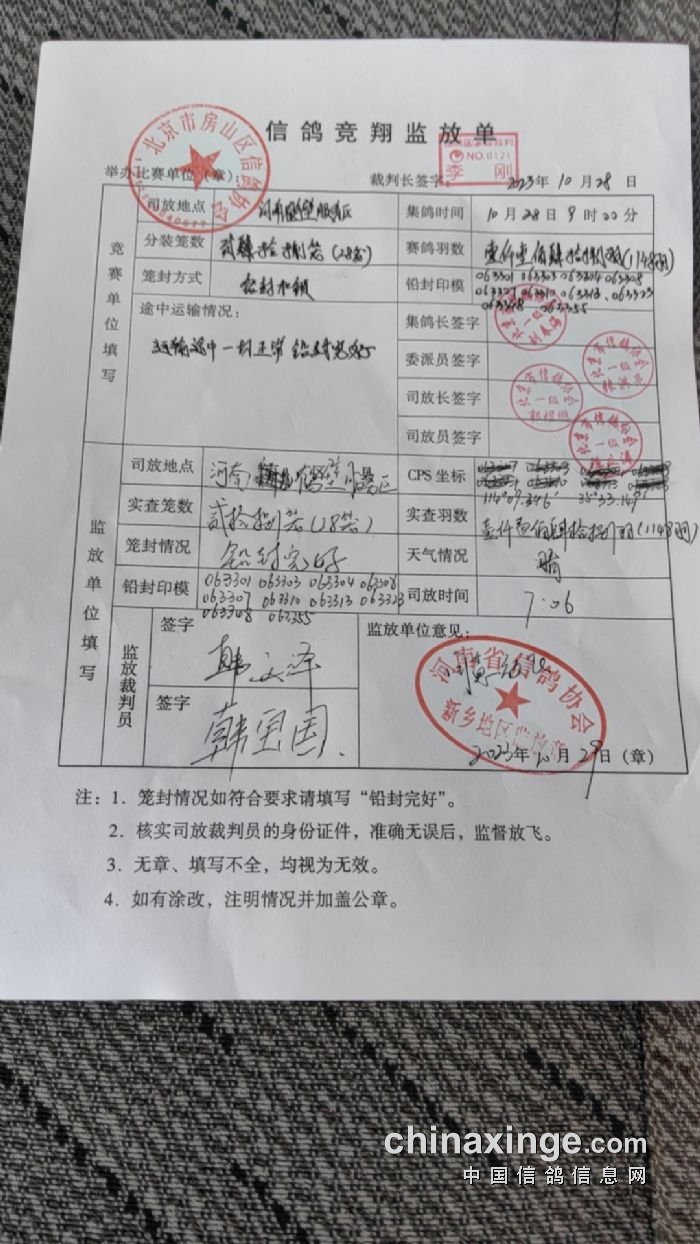 信鸽竞翔监放单
北京市房山区信鸽协会
NO.0121
李 刚
举办比赛单位（章）：
裁判长签字：
2023年10月28日
竞赛单位填写
司放地点
集鸽时间
10月28日9时00分
分装笼数
(28笼)
赛鸽羽数
(1148羽)
笼封方式
铅封印模
063301 063303 063304 063308
063307 063310 063313、063323
063348 063355
途中运输情况：
运输途中一切正常 铅封完好
集鸽长签字
委派员签字
司放长签字
司放员签字
监放单位填写
司放地点
河南
CPS 坐标
114°09.346′ 35°33.149′
实查笼数
(28笼)
实查羽数
(1148羽)
笼封情况
铅封完好
天气情况
晴
铅封印模
063301 063303 063304 063308
063307 063310 063313 063323
063348 063355
司放时间
7:06
监放裁判员
签字
签字
韩国国
监放单位意见：
河南省信鸽协会
新乡地区监放
2023年10月29日（章）
注：1. 笼封情况如符合要求请填写“铅封完好”。
2. 核实司放裁判员的身份证件，准确无误后，监督放飞。
3. 无章、填写不全，均视为无效。
4. 如有涂改，注明情况并加盖公章。
chinaxinge.com
中国信鸽信息网